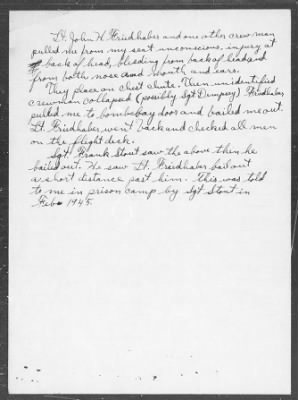 Lt. John W. Friedhaber and one other crew man
pulled me from my seat unconscious, injury at
back of head, bleeding from back of head and
from both nose and mouth and ears.
They place on chest chute. Then unidentified
crewman collapsed (possibly Sgt Dempsey) Friedhaber
pulled me to bombbay door and bailed me out.
Lt. Friedhaber went back and checked all men
on the flight deck.
Sgt. Frank Stout saw the above then he
bailed out. He saw Lt. Friedhaber bail out
a short distance past him. This was told
to me in prison camp by Sgt Stout in
Feb 1945.